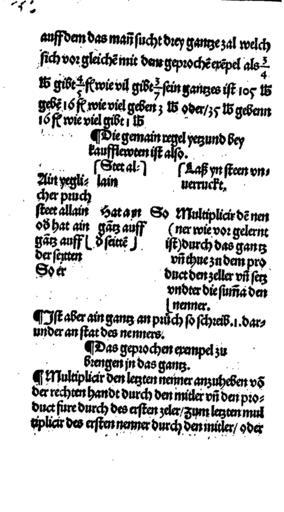 auff dem das mañ sucht drey gantze zal welch
sich vor gleichẽ mit dem geprochẽ exẽpel als 3/4
℔ gibt 4/5 fl wie vil gibt 3/7 sein gantzes ist 105 ℔
gebẽ 16 fl wie viel geben 3 ℔ oder/35 ℔ gebenn
16 fl wie viel gibt 1 ℔
¶Die gemain regel yetzund bey
kaufflewten ist also.
Ain yegli-
cher pruch
steet allain
od̕ hat ain
gãtz auff
der seytten
So er
Steet al-
lain
Hat ayn
gãtz auff
d̕ seitẽ
So
Laß yn steen vn-
uerruckt.
Multiplicir dẽ nen
ner wie vor gelernt
ist durch das gantz
vñ thue zu den pro
duct den zeller vñ setz
vndter die sum̃a den
nenner.
¶Ist aber ain gantz an pruch so schreib .1. dar-
under an stat des nenners.
¶Das geprochen exempel zu
brengen in das gantz.
¶Multiplicir den letzten nenner anzuheben võ
der rechten handt durch den mitler vñ den pro-
duct fure durch des ersten zeler/Zum letzten mul
tiplicir des ersten nenner durch den mitler/oder